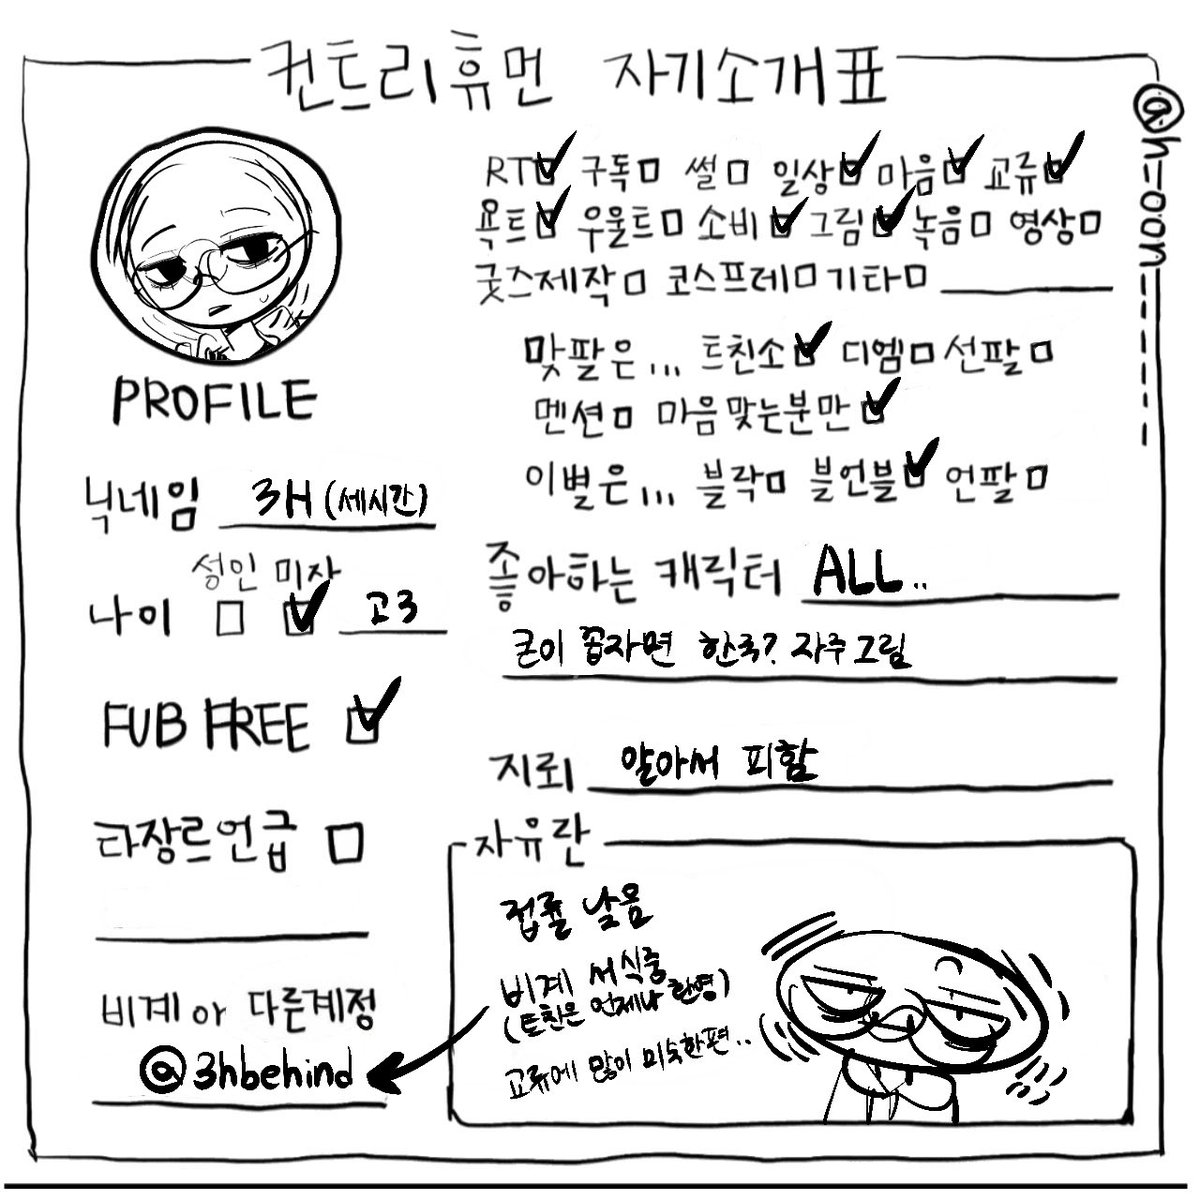 컨트리휴먼 자기소개표
@h_oon_____
RT 구독 썰 일상 마음 교류
욕트 우울트 소비 그림 녹음 영상
굿즈제작 코스프레 기타
맞팔은... 트친소 디엠 선팔
멘션 마음맞는분만
이별은... 블락 블언블 언팔
PROFILE
닉네임 3H (세시간)
성인 미자
나이 고3
FUB FREE
타장르언급
비계 or 다른계정
@3hbehind
좋아하는 캐릭터 ALL..
굳이 꼽자면 한국? 자주그림
지뢰 알아서 피함
자유란
컵쥴 날옴
비계 서식중
(트친은 언제나 환영)
교류에 많이 미숙한편..